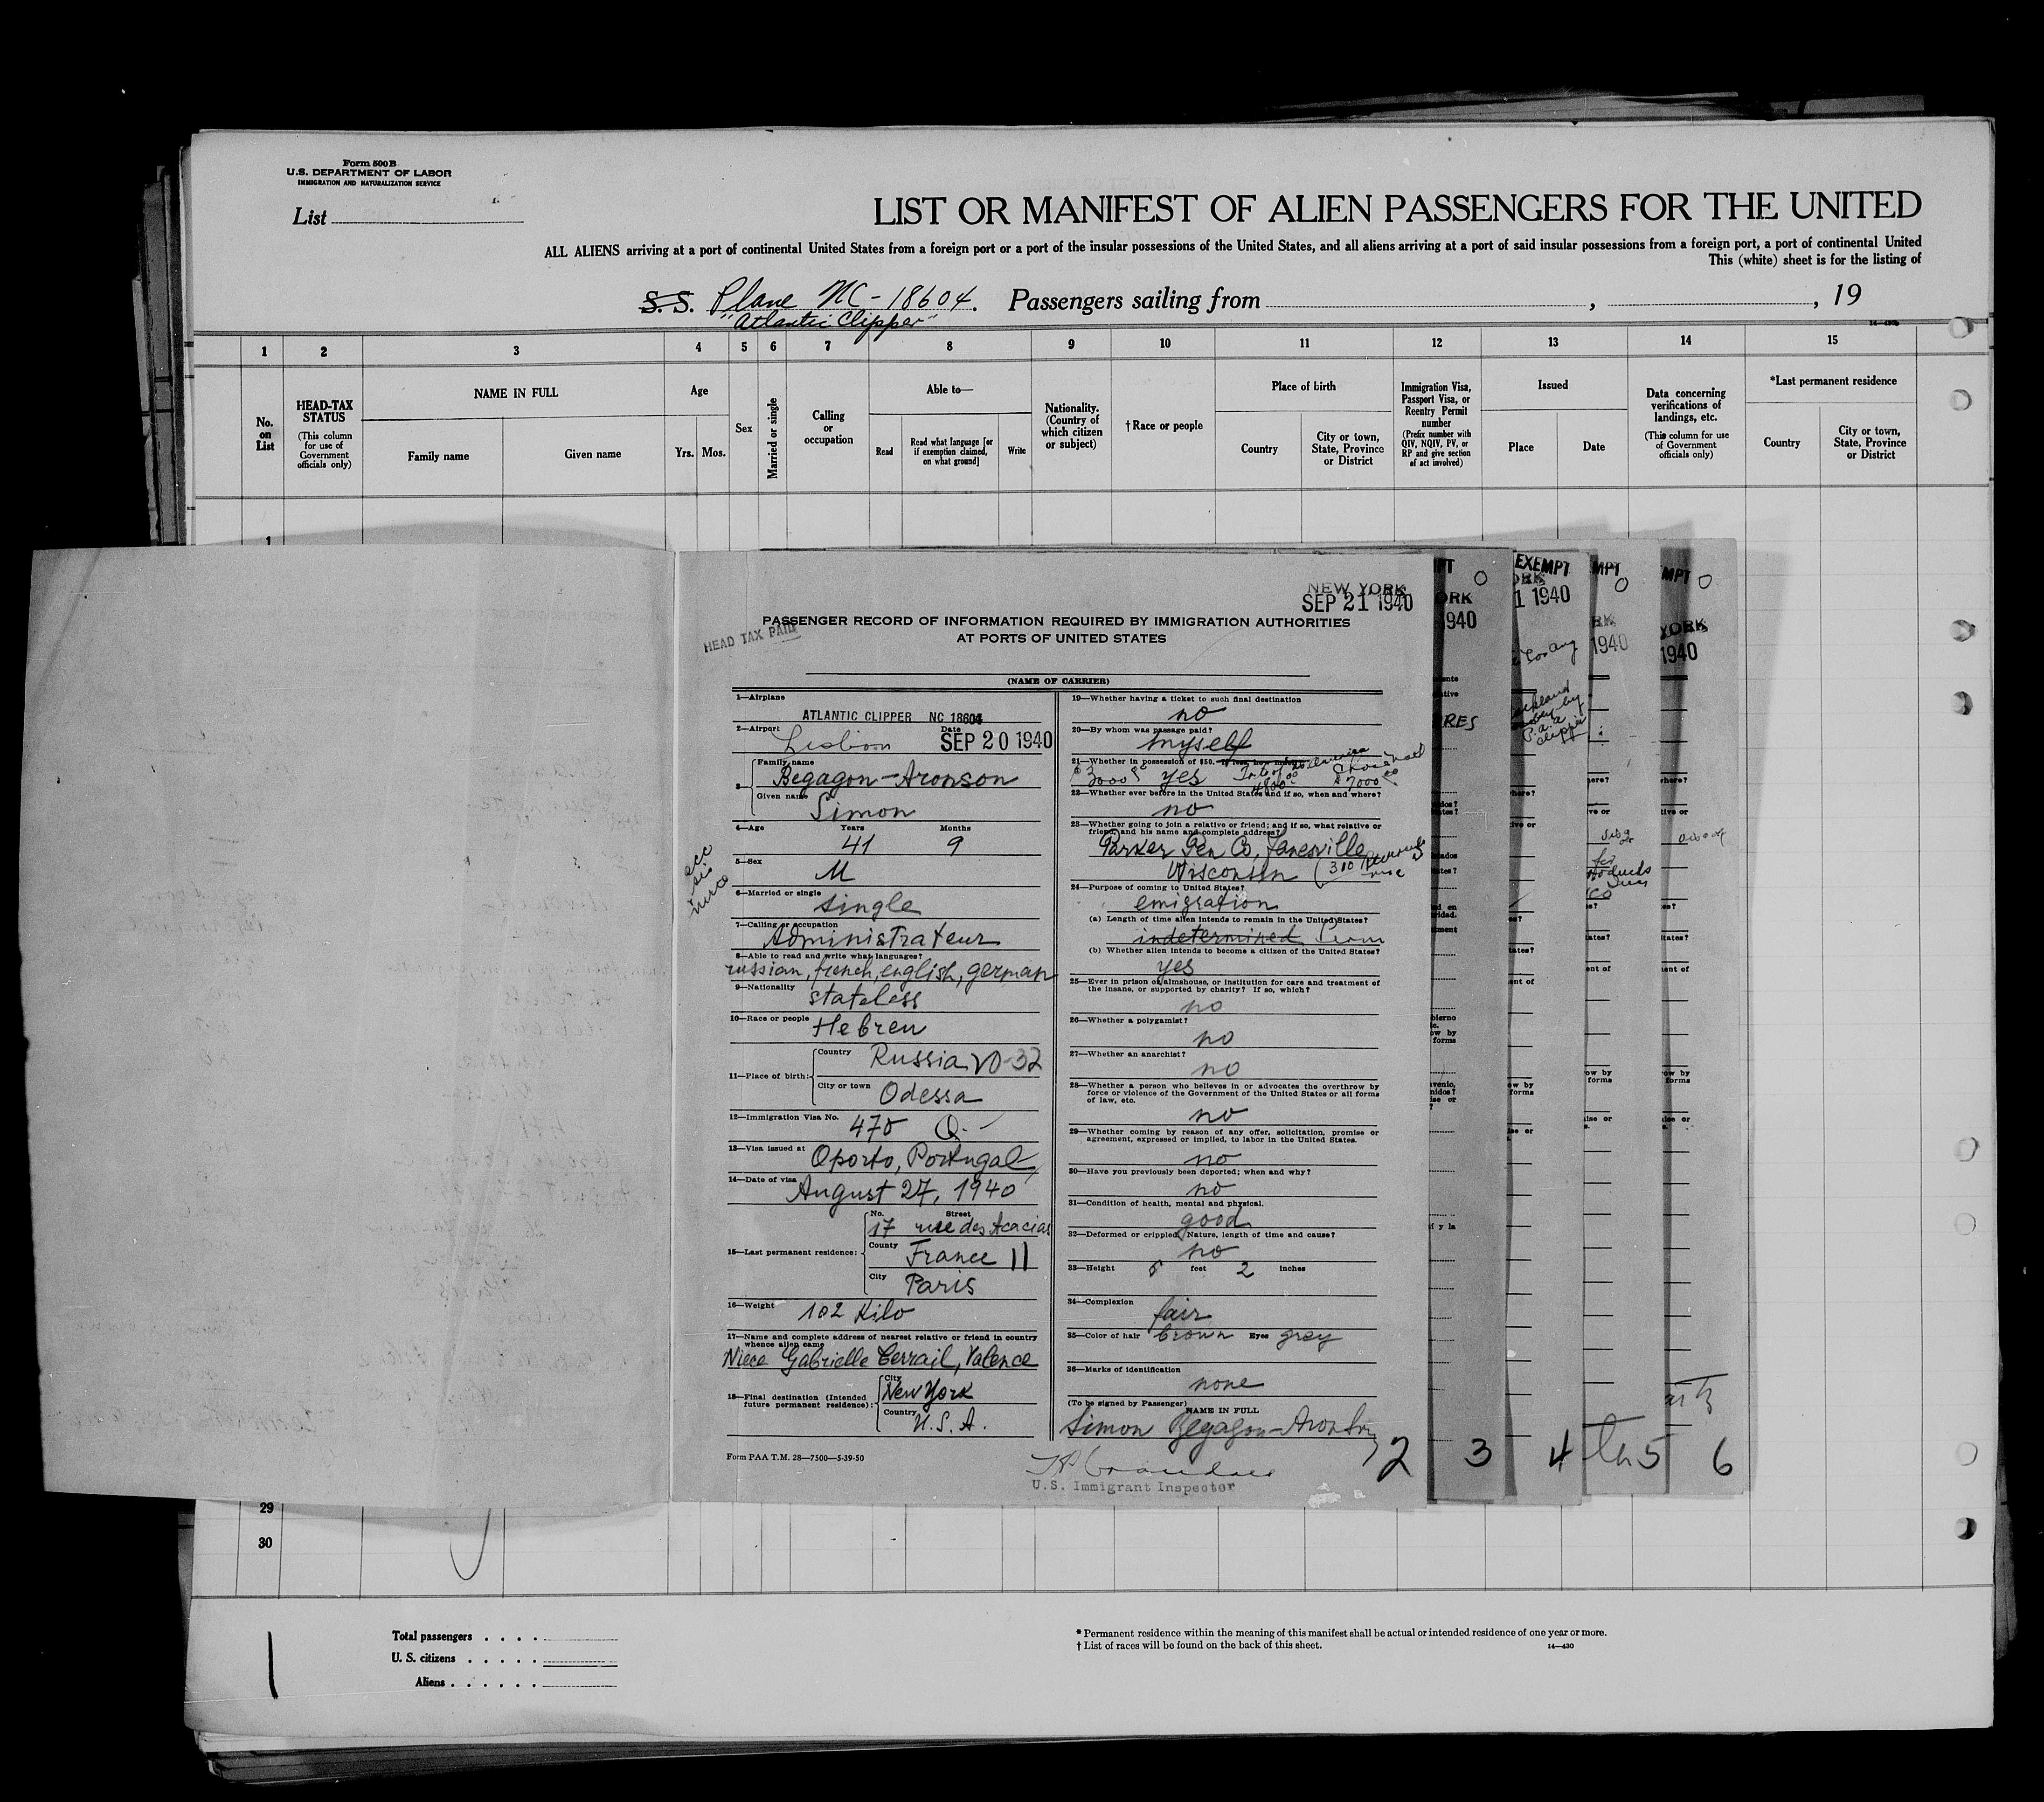 Form 500 B
U.S. DEPARTMENT OF LABOR
IMMIGRATION AND NATURALIZATION SERVICE
List
LIST OR MANIFEST OF ALIEN PASSENGERS FOR THE UNITED
ALL ALIENS arriving at a port of continental United States from a foreign port or a port of the insular possessions of the United States, and all aliens arriving at a port of said insular possessions from a foreign port, a port of continental United
This (white) sheet is for the listing of
S. S. Plane NC-18604. Passengers sailing from , , 19
"Atlantic Clipper"
1 2 3 4 5 6 7 8 9 10 11 12 13 14 15
No. on List
HEAD-TAX STATUS
(This column for use of Government officials only)
NAME IN FULL
Family name
Given name
Age
Yrs. Mos.
Sex
Married or single
Calling or occupation
Able to—
Read
Read what language [or if exemption claimed, on what ground]
Write
Nationality. (Country of which citizen or subject)
†Race or people
Place of birth
Country
City or town, State, Province or District
Immigration Visa, Passport Visa, or Reentry Permit number
(Prefix number with QIV, NQIV, PV, or RP and give section of act involved)
Issued
Place
Date
Data concerning verifications of landings, etc.
(This column for use of Government officials only)
*Last permanent residence
Country
City or town, State, Province or District
1
NEW YORK
SEP 21 1940
HEAD TAX PAID
PASSENGER RECORD OF INFORMATION REQUIRED BY IMMIGRATION AUTHORITIES
AT PORTS OF UNITED STATES
(NAME OF CARRIER)
1—Airplane
ATLANTIC CLIPPER NC 18604
2—Airport Lisbon Date SEP 20 1940
3 Family name Begagon-Aronson
Given name Simon
4—Age Years 41 Months 9
5—Sex M
6—Married or single single
7—Calling or occupation Administrateur
8—Able to read and write what languages?
russian, french, english, german
9—Nationality stateless
10—Race or people Hebreu
11—Place of birth: Country Russia 20-32
City or town Odessa
12—Immigration Visa No. 470 Q-
13—Visa issued at Oporto, Portugal
14—Date of visa August 27, 1940
15—Last permanent residence: No. 17 Street rue des Acacias
County France
City Paris
16—Weight 102 Kilo
17—Name and complete address of nearest relative or friend in country whence alien came
Niece Gabrielle Cerrail, Valence
18—Final destination (Intended future permanent residence): City New York
Country U.S.A.
Form PAA T.M. 28—7500—5-39-50
19—Whether having a ticket to such final destination
no
20—By whom was passage paid?
myself
21—Whether in possession of $50. If less, how much?
$3000 yes 4800 $7000
22—Whether ever before in the United States and if so, when and where?
no
23—Whether going to join a relative or friend; and if so, what relative or friend and his name and complete address?
Parker Pen Co, Janesville
Wisconsin
24—Purpose of coming to United States?
emigration
(a) Length of time alien intends to remain in the United States?
indetermined Perm
(b) Whether alien intends to become a citizen of the United States?
yes
25—Ever in prison or almshouse, or institution for care and treatment of the insane, or supported by charity? If so, which?
no
26—Whether a polygamist?
no
27—Whether an anarchist?
no
28—Whether a person who believes in or advocates the overthrow by force or violence of the Government of the United States or all forms of law, etc.
no
29—Whether coming by reason of any offer, solicitation, promise or agreement, expressed or implied, to labor in the United States.
no
30—Have you previously been deported; when and why?
no
31—Condition of health, mental and physical.
good
32—Deformed or crippled. Nature, length of time and cause?
no
33—Height 5 feet 2 inches
34—Complexion
fair
35—Color of hair brown Eyes grey
36—Marks of identification
none
(To be signed by Passenger)
NAME IN FULL
Simon Begagon-Aronson
U.S. Immigrant Inspector
2 3 4 5 6
29
30
Total passengers
U. S. citizens
Aliens
* Permanent residence within the meaning of this manifest shall be actual or intended residence of one year or more.
† List of races will be found on the back of this sheet.
14—430